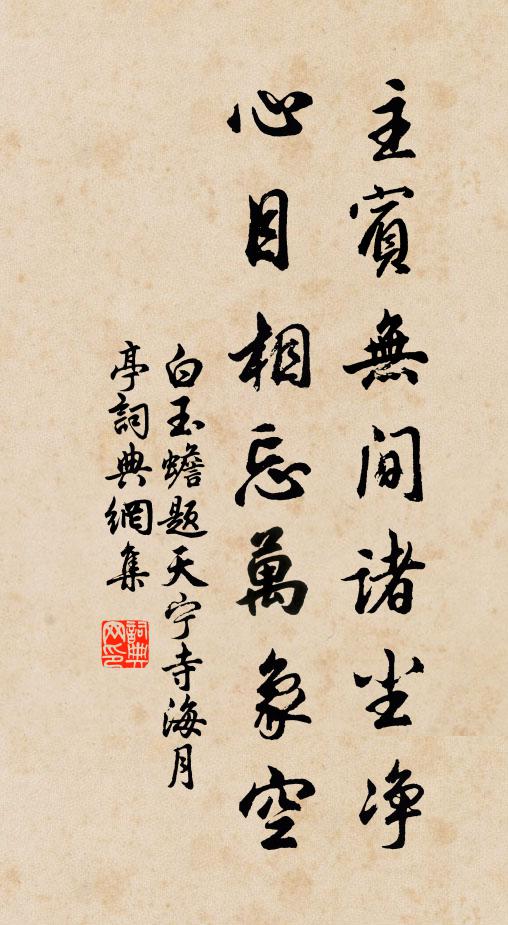 主賓無間諸尘净
心目相忘萬象空
白玉蟾题天宁寺海月
亭詞典網集
詞典網印